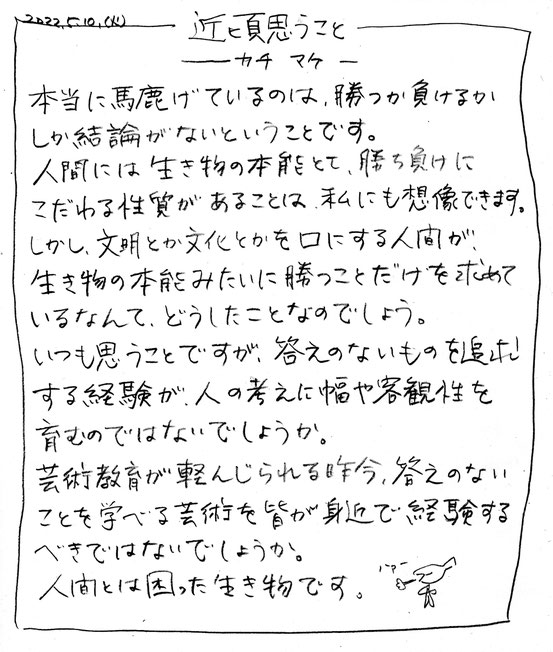 2022.5.10.(火)
近頃思うこと
― カチ マケ ―
本当に馬鹿げているのは、勝つか負けるか
しか結論がないということです。
人間には生き物の本能とて、勝ち負けに
こだわる性質があることは、私にも想像できます。
しかし、文明とか文化とかを口にする人間が、
生き物の本能みたいに勝つことだけを求めて
いるなんて、どうしたことなのでしょう。
いつも思うことですが、答えのないものを追求
する経験が、人の考えに幅や客観性を
育むのではないでしょうか。
芸術教育が軽んじられる昨今、答えのない
ことを学べる芸術を皆が身近で経験する
べきではないでしょうか。
人間とは困った生き物です。